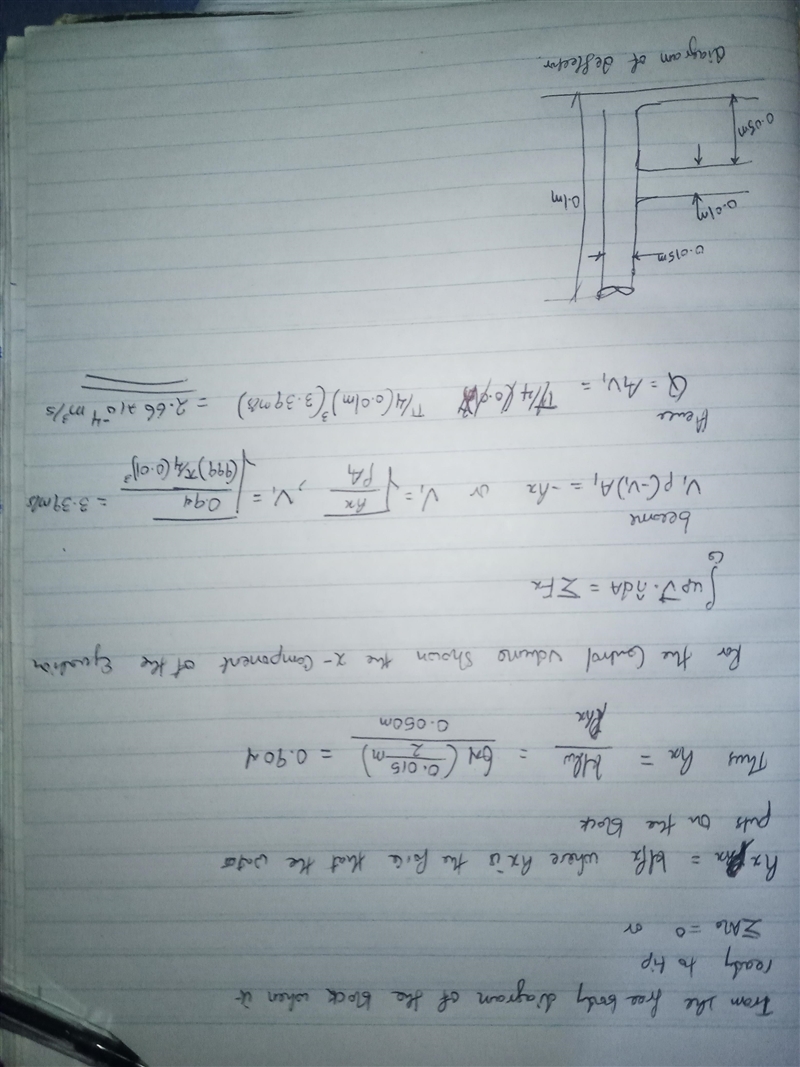 From the free body diagram of the block when it
ready to tip
ΣMo = 0 or
Rx lRx = Wlx where Rx is the force that the water
puts on the block
Thus Rx = Wlw / lRx = 6N (0.015/2 m) / 0.050m = 0.90N
For the Control Volume shown the x-Component of the Equation
∫cs uρV̄·n̂dA = ΣFx
become
V₁ρ(-V₁)A₁ = -Rx or V₁ = √(Rx/ρA₁), V₁ = √(0.9N/(999)π/4(0.01)²) = 3.39m/s
Hence
Q = A₁V₁ = π/4(0.01m)²(3.39m/s) = 2.66x10⁻⁴m³/s
0.015m
0.01m
0.05m
0.1m
Diagram of deflector